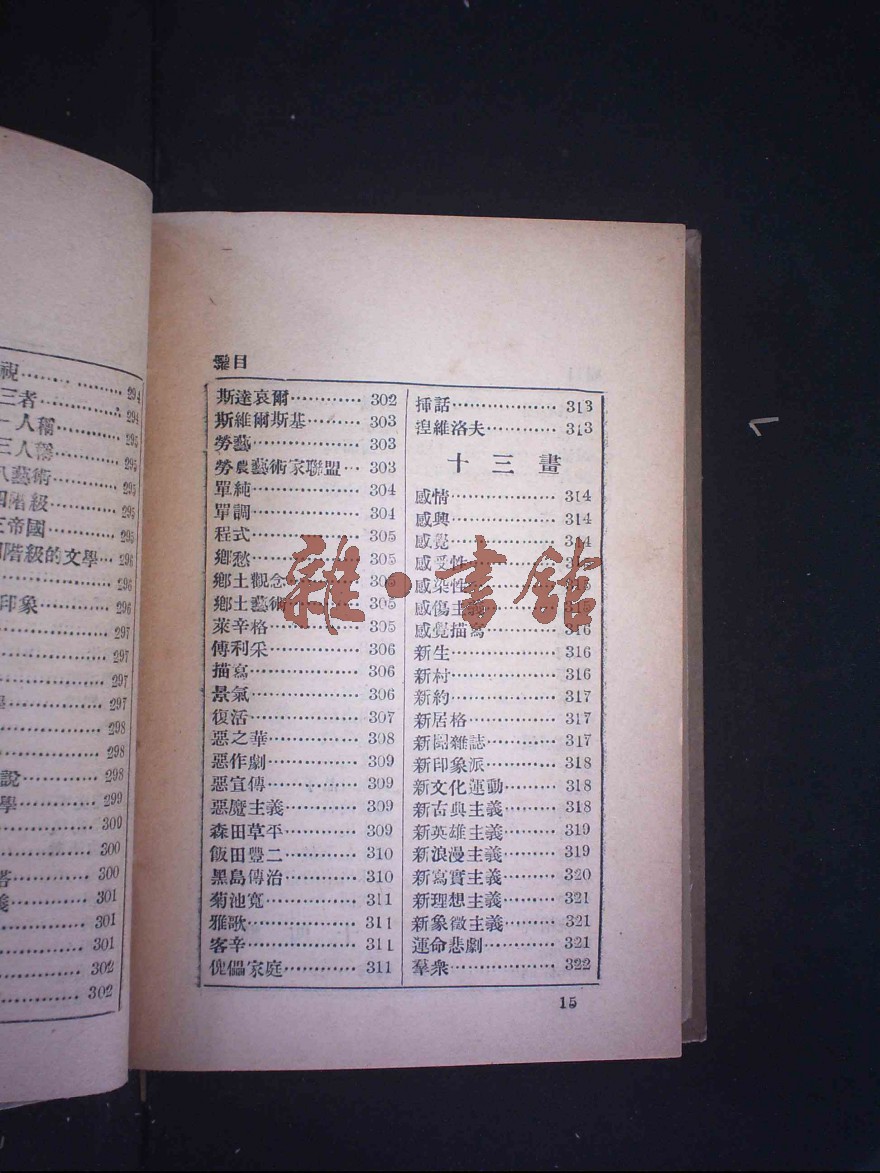 視……… 294
三者……… 294
一人稱……… 295
三人稱……… 295
八藝術……… 295
四階級……… 295
三帝國……… 295
階級的文學… 296
296
印象……… 296
297
297
297
297
298
298
說……… 298
學……… 299
300
300
300
義……… 301
301
301
302
302
目
斯達哀爾……… 302
斯維爾斯基……… 303
勞藝……… 303
勞農藝術家聯盟… 303
單純……… 304
單調……… 304
程式……… 305
鄉愁……… 305
鄉土觀念……… 305
鄉土藝術……… 305
萊辛格……… 305
傅利采……… 306
描寫……… 306
景氣……… 306
復活……… 307
惡之華……… 308
惡作劇……… 309
惡宣傳……… 309
惡魔主義……… 309
森田草平……… 309
飯田豐二……… 310
黑島傳治……… 310
菊池寬……… 311
雅歌……… 311
客辛……… 311
傀儡家庭……… 311
揷話……… 313
湼維洛夫……… 313
十三畫
感情……… 314
感興……… 314
感覺……… 314
感受性………
感染性……… 315
感傷主義……… 315
感覺描寫……… 316
新生……… 316
新村……… 316
新約……… 317
新居格……… 317
新聞雜誌……… 317
新印象派……… 318
新文化運動……… 318
新古典主義……… 318
新英雄主義……… 319
新浪漫主義……… 319
新寫實主義……… 320
新理想主義……… 321
新象徵主義……… 321
運命悲劇……… 321
羣衆……… 322
15
雜·書館